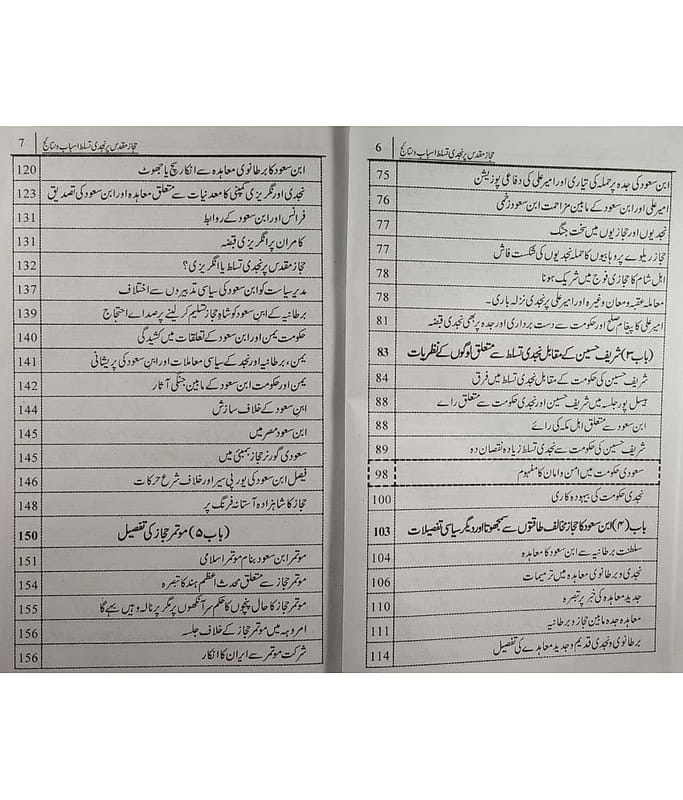 حجاز مقدس پر نجدی تسلط اسباب و نتائج 6
ابن سعود کی جدہ پر حملہ کی تیاری اور امیر علی کی دفاعی پوزیشن 75
امیر علی اور ابن سعود کے مابین مزاحمت ابن سعود زخمی 76
نجدیوں اور حجازیوں میں سخت جنگ 77
حجاز ریلوے پر وہابیوں کا حملہ نجدیوں کی شکست فاش 77
اہل شام کا حجازی فوج میں شریک ہونا 78
معاملہ عقبہ و معان وغیرہ اور امیر علی پر نجدی نزلہ باری۔ 78
امیر علی کا پیغام صلح اور حکومت سے دست برداری اور جدہ پر بھی نجدی قبضہ 81
(باب ۳) شریف حسین کے مقابل نجدی تسلط سے متعلق لوگوں کے نظریات 83
شریف حسین کی حکومت کے مقابل نجدی تسلط میں فرق 84
ہیسل پور جلسہ میں شریف حسین اور نجدی حکومت سے متعلق رائے 88
ابن سعود سے متعلق اہل مکہ کی رائے 88
شریف حسین کی حکومت سے نجدی تسلط زیادہ نقصان دہ 89
سعودی حکومت میں امن و امان کا مفہوم 98
نجدی حکومت کی بیہودہ کاری 100
باب (۴) ابن سعود کا حجاز مخالف طاقتوں سے سمجھوتا اور دیگر سیاسی تفصیلات 103
سلطنت برطانیہ سے ابن سعود کا معاہدہ 104
نجدی و برطانوی معاہدہ میں ترمیمات 106
جدید معاہدہ کی خبر پر تبصرہ 110
معاہدہ جدہ مابین حجاز و برطانیہ 111
برطانوی و نجدی قدیم و جدید معاہدے کی تفصیل 114
حجاز مقدس پر نجدی تسلط اسباب و نتائج 7
ابن سعود کا برطانوی معاہدہ سے انکار سچ یا جھوٹ 120
نجدی اور انگریزی کمپنی کا معدنیات سے متعلق معاہدہ اور ابن سعود کی تصدیق 123
فرانس اور ابن سعود کے روابط 131
کامران پر انگریزی قبضہ 131
حجاز مقدس پر نجدی تسلط یا انگریزی؟ 132
مدیر سیاست کو ابن سعود کی سیاسی تدبیروں سے اختلاف 137
برطانیہ کے ابن سعود کو شاہ حجاز تسلیم کر لینے پر صدائے احتجاج 139
حکومت یمن اور ابن سعود کے تعلقات میں کشیدگی 140
یمن، برطانیہ اور نجد کے سیاسی معاملات اور ابن سعود کی پریشانی 141
یمن اور حکومت ابن سعود کے مابین جنگی آثار 142
ابن سعود کے خلاف سازش 144
ابن سعود مصر میں 145
سعودی گورنر حجاز بمبئی میں 145
فیصل ابن سعود کی یورپی سیر اور خلاف شرع حرکات 146
حجاز کا شاہزادہ آستانہ فرنگ پر 148
(باب ۵) موتمر حجاز کی تفصیل 150
موتمر ابن سعود بنام موتمر اسلامی 151
موتمر حجاز سے متعلق محدث اعظم ہند کا تبصرہ 154
موتمر حجاز کا حال پنچوں کا حکم سر آنکھوں پر مگر پرنالہ وہیں بہے گا 155
امروہہ میں موتمر حجاز کے خلاف جلسہ 156
شرکت موتمر سے ایران کا انکار 156